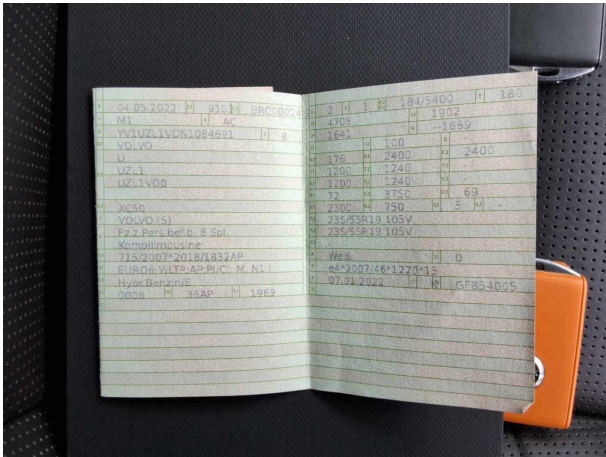 04.05.2022 9101
M1 AC
YV1UZL1VDN1064691 8
VOLVO
U
UZL1
UZL1VD0
XC60
VOLVO (S)
Fz.z.Pers.bef.b. 8 Spl.
Kombilimousine
715/2007*2018/1832AP
EURO6;WLTP;AP;PI/CI; M, N1 I
Hybr.Benzin/E
0008 36AP 1969
2 1 184/5400 180
4708 1902
1641 --1659
100
176 2400 2400
1200 1240 -
1200 1240 -
72 3750 69
2300 750 5 -
235/55R19 105V
235/55R19 105V
Weiß 0
e4*2007/46*1220*15
07.01.2022 GF854005